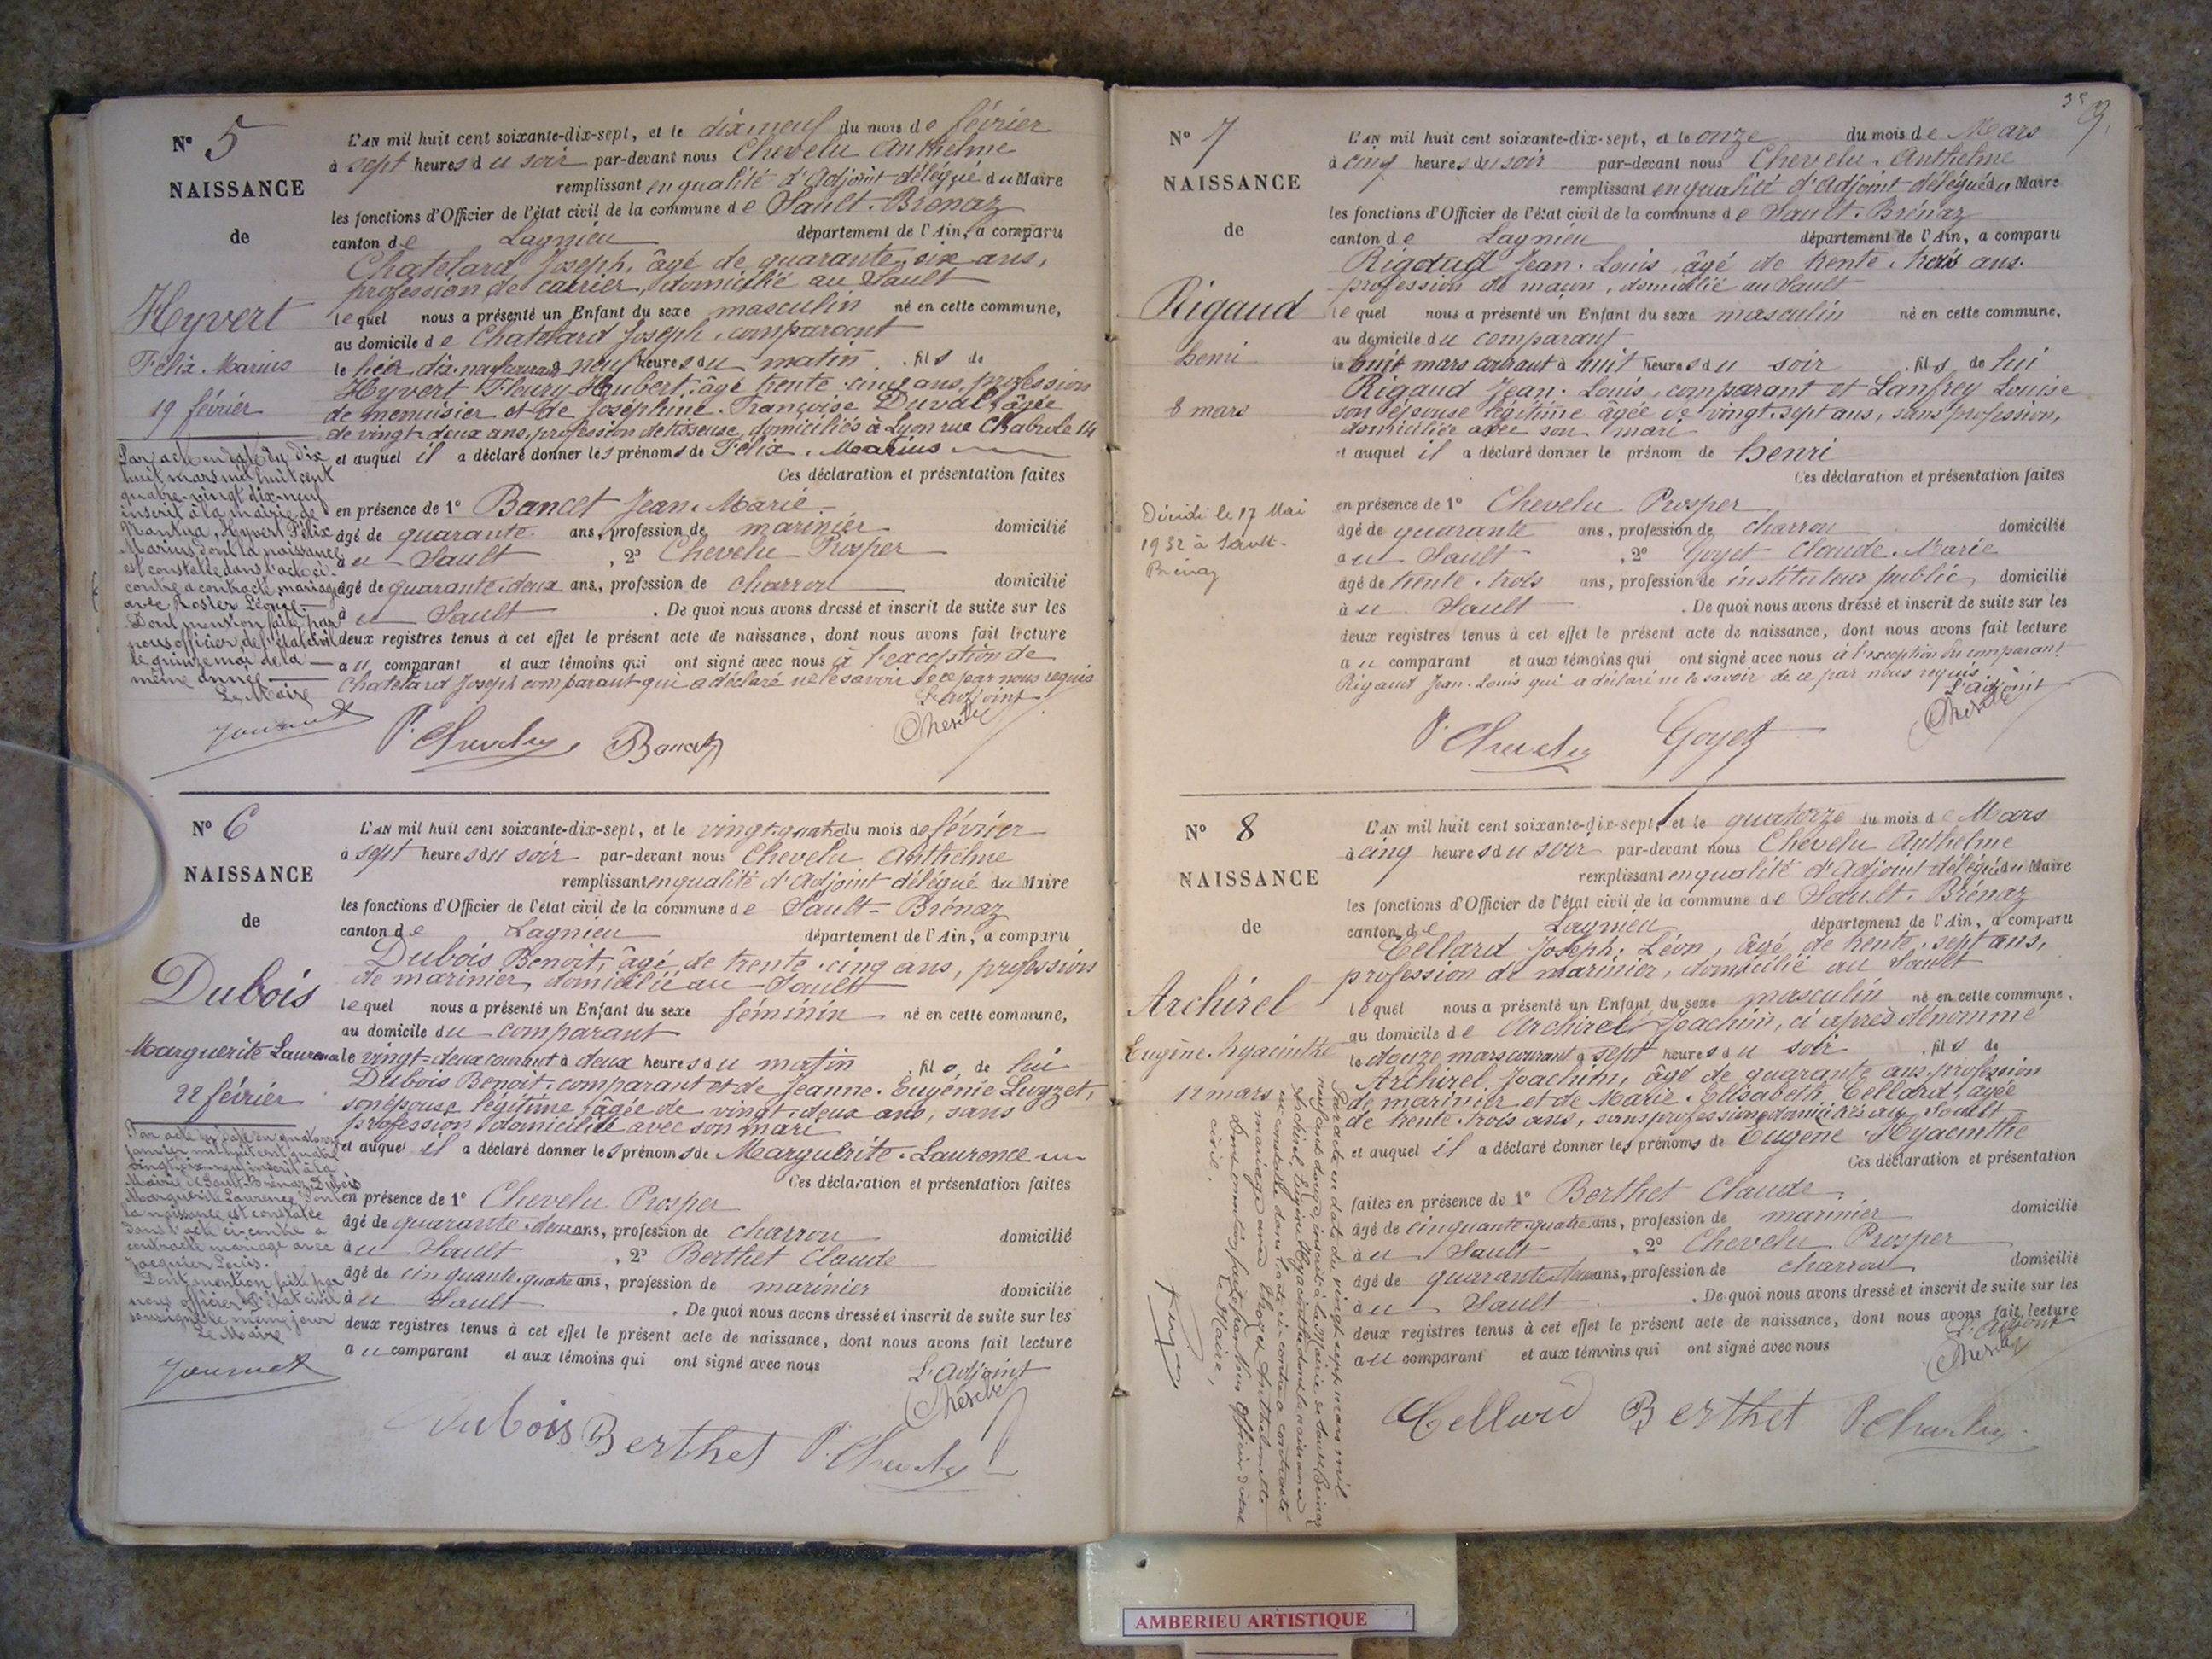 Nº 5
NAISSANCE
de
Hyvert
Félix Marius
19 février
L'AN mil huit cent soixante-dix-sept, et le dix neuf du mois de février
à sept heures du soir par-devant nous Chevelu Anthelme
remplissant en qualité d'Adjoint délégué du Maire
les fonctions d'Officier de l'état civil de la commune de Sault-Brénaz
canton de Lagnieu département de l'Ain, a comparu
Chatelard Joseph, âgé de quarante six ans,
profession de carrier, domicilié au Sault
lequel nous a présenté un Enfant du sexe masculin né en cette commune,
au domicile de Chatelard Joseph, comparant
le à neuf heures du matin, fils de
Hyvert Fleury Hubert, âgé trente cinq ans, profession
de menuisier et de Joséphine Françoise Duval, âgée
de vingt-deux ans, profession de domiciliés à Lyon rue Chabrole 14
et auquel il a déclaré donner les prénoms de Félix. Marius
Ces déclaration et présentation faites
en présence de 1º Bancet Jean Marie
âgé de quarante ans, profession de marinier domicilié
au Sault, 2º Chevelu Prosper
âgé de quarante deux ans, profession de charron domicilié
à u Sault. De quoi nous avons dressé et inscrit de suite sur les
deux registres tenus à cet effet le présent acte de naissance, dont nous avons fait lecture
au comparant et aux témoins qui ont signé avec nous à l'exception de
Chatelard Joseph comparant qui a déclaré ne le savoir de ce par nous requis
L'adjoint
P. Chevelu Bancet
Par acte en date du dix
huit mars mil huit cent
quatre-vingt dix-neuf
inscrit à la mairie de
Nantua, Hyvert Félix
Marius dont la naissance
est constatée dans l'acte ci-
contre a contracté mariage
avec Léonie
Dont mention faite par
nous officier de l'état civil
le quinze mai de la
même année
Le Maire
Journet
Nº 6
NAISSANCE
de
Dubois
Marguerite Laurence
22 février
L'AN mil huit cent soixante-dix-sept, et le vingt-quatre du mois de février
à sept heures du soir par-devant nous Chevelu Anthelme
remplissant en qualité d'Adjoint délégué du Maire
les fonctions d'Officier de l'état civil de la commune de Sault-Brénaz
canton de Lagnieu département de l'Ain, a comparu
Dubois Benoit, âgé de trente-cinq ans, profession
de marinier, domicilié au Sault
lequel nous a présenté un Enfant du sexe féminin né en cette commune,
au domicile du comparant
le vingt-deux courant à deux heures du matin fille de lui
Dubois Benoit, comparant et de Jeanne Eugénie Luyzet,
son épouse légitime, âgée de vingt-deux ans, sans
profession domiciliée avec son mari
et auquel il a déclaré donner les prénoms de Marguerite. Laurence
Ces déclaration et présentation faites
en présence de 1º Chevelu Prosper
âgé de quarante-deux ans, profession de charron domicilié
au Sault, 2º Berthet Claude
âgé de cinquante quatre ans, profession de marinier domicilié
à u Sault. De quoi nous avons dressé et inscrit de suite sur les
deux registres tenus à cet effet le présent acte de naissance, dont nous avons fait lecture
au comparant et aux témoins qui ont signé avec nous
L'adjoint
Dubois Berthet P. Chevelu
Par acte en date du quatorze
janvier mil huit cent quatre
inscrit à la
Mairie de Sault-Brénaz Dubois
Marguerite Laurence dont
la naissance est constatée
dans l'acte ci-contre a
contracté mariage avec
Jacquier Louis.
Dont mention faite par
nous officier de l'état civil
soussigné le même jour
Le Maire
Journet
Nº 7
NAISSANCE
de
Rigaud
henri
8 mars
L'AN mil huit cent soixante-dix-sept, et le onze du mois de Mars
à cinq heures du soir par-devant nous Chevelu Anthelme
remplissant en qualité d'Adjoint délégué du Maire
les fonctions d'Officier de l'état civil de la commune de Sault-Brénaz
canton de Lagnieu département de l'Ain, a comparu
Rigaud Jean-Louis, âgé de trente trois ans.
profession de maçon, domicilié au Sault
lequel nous a présenté un Enfant du sexe masculin né en cette commune,
au domicile du comparant
le huit mars courant à huit heures du soir, fils de lui
Rigaud Jean-Louis, comparant et Lanfrey Louise
son épouse légitime âgée de vingt-sept ans, sans profession,
domiciliée avec son mari
et auquel il a déclaré donner le prénom de henri
Ces déclaration et présentation faites
en présence de 1º Chevelu Prosper
âgé de quarante ans, profession de charron domicilié
au Sault, 2º Goyet Claude-Marie
âgé de trente-trois ans, profession de instituteur public, domicilié
à u Sault. De quoi nous avons dressé et inscrit de suite sur les
deux registres tenus à cet effet le présent acte de naissance, dont nous avons fait lecture
au comparant et aux témoins qui ont signé avec nous à l'exception du comparant
Rigaud Jean-Louis qui a déclaré ne le savoir de ce par nous requis
L'adjoint
P. Chevelu Goyet
Décédé le 17 Mai
1932 à Sault-
Brénaz
Nº 8
NAISSANCE
de
Archirel
Eugène hyacinthe
12 mars
L'AN mil huit cent soixante-dix-sept, et le quatorze du mois de Mars
à cinq heures du soir par-devant nous Chevelu Anthelme
remplissant en qualité d'Adjoint délégué du Maire
les fonctions d'Officier de l'état civil de la commune de Sault-Brénaz
canton de Lagnieu département de l'Ain, a comparu
Cellard Joseph-Léon, âgé de trente-sept ans,
profession de marinier, domicilié au Sault
lequel nous a présenté un Enfant du sexe masculin né en cette commune,
au domicile de Archirel Joachim, ci après dénommé
le douze mars courant à sept heures du soir, fils de
Archirel Joachim, âgé de quarante ans profession
de marinier et de Marie-Elisabeth Cellard, âgée
de trente-trois ans, sans profession, domiciliés au Sault
et auquel il a déclaré donner les prénoms de Eugène-Hyacinthe
Ces déclaration et présentation
faites en présence de 1º Berthet Claude
âgé de cinquante-quatre ans, profession de marinier domicilié
à u Sault, 2º Chevelu Prosper
âgé de quarante deux ans, profession de charron domicilié
à u Sault. De quoi nous avons dressé et inscrit de suite sur les
deux registres tenus à cet effet le présent acte de naissance, dont nous avons fait lecture
au comparant et aux témoins qui ont signé avec nous
L'adjoint
Cellard Berthet P. Chevelu
Par acte en date du vingt sept mars mil
neuf cent douze, inscrit à la Mairie de Sault-Brénaz
Archirel Eugène Hyacinthe dont la naissance
est constatée dans l'acte ci-contre a contracté
mariage avec
Dont mention faite par Nous Officier d'état
civil.
Le Maire,
AMBERIEU ARTISTIQUE